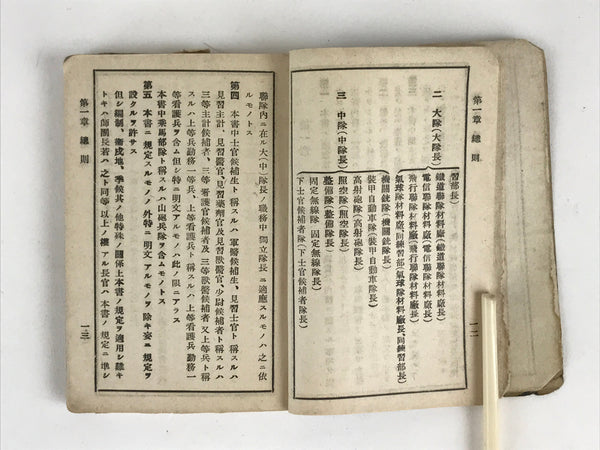 第一章 總則
習部長)
鐵道聯隊材料廠(鐵道聯隊材料廠長)
二 大隊(大隊長)
電信聯隊材料廠(電信聯隊材料廠長)
飛行聯隊材料廠(飛行聯隊材料廠長)
氣球隊材料廠、同練習部(氣球隊材料廠長、同練習部長)
機關銃隊(機關銃隊長)
裝甲自動車隊(裝甲自動車隊長)
高射砲隊(高射砲隊長)
三 中隊(中隊長)
照空隊(照空隊長)
整備隊(整備隊長)
固定無線隊(固定無線隊長)
下士官候補者隊(下士官候補者隊長)
一二
聯隊內ニ在ル大(中)隊長ノ職務中獨立隊長ニ適應スルモノハ之ニ依
ルモノトス
第四 本書中士官候補生ト稱スルハ軍醫候補生、見習士官ト稱スルハ
見習主計、見習醫官、見習藥劑官及見習獸醫官、少尉候補者ト稱スルハ
三等主計候補者、三等看護官候補者及三等獸醫候補者又上等兵ト稱
スルハ上等兵勤務一等兵、上等看護兵ト稱スルハ上等看護兵勤務一
等看護兵ヲ含ム但シ特ニ明文アルモノハ此ノ限ニアラス
本書中乘馬部隊ト稱スルハ山砲兵隊ヲ含ムモノトス
第五 本書ニ規定スルモノノ外特ニ明文アルモノヲ除キ妄ニ規定ヲ
設クルヲ許サス
但シ編制、衞戍地、季候其ノ他特殊ノ關係上本書ノ規定ヲ適用シ難キ
トキハ師團長若ハ之ト同等以上ノ權アル長官ハ本書ノ規定ニ準シ
第一章 總則
一三